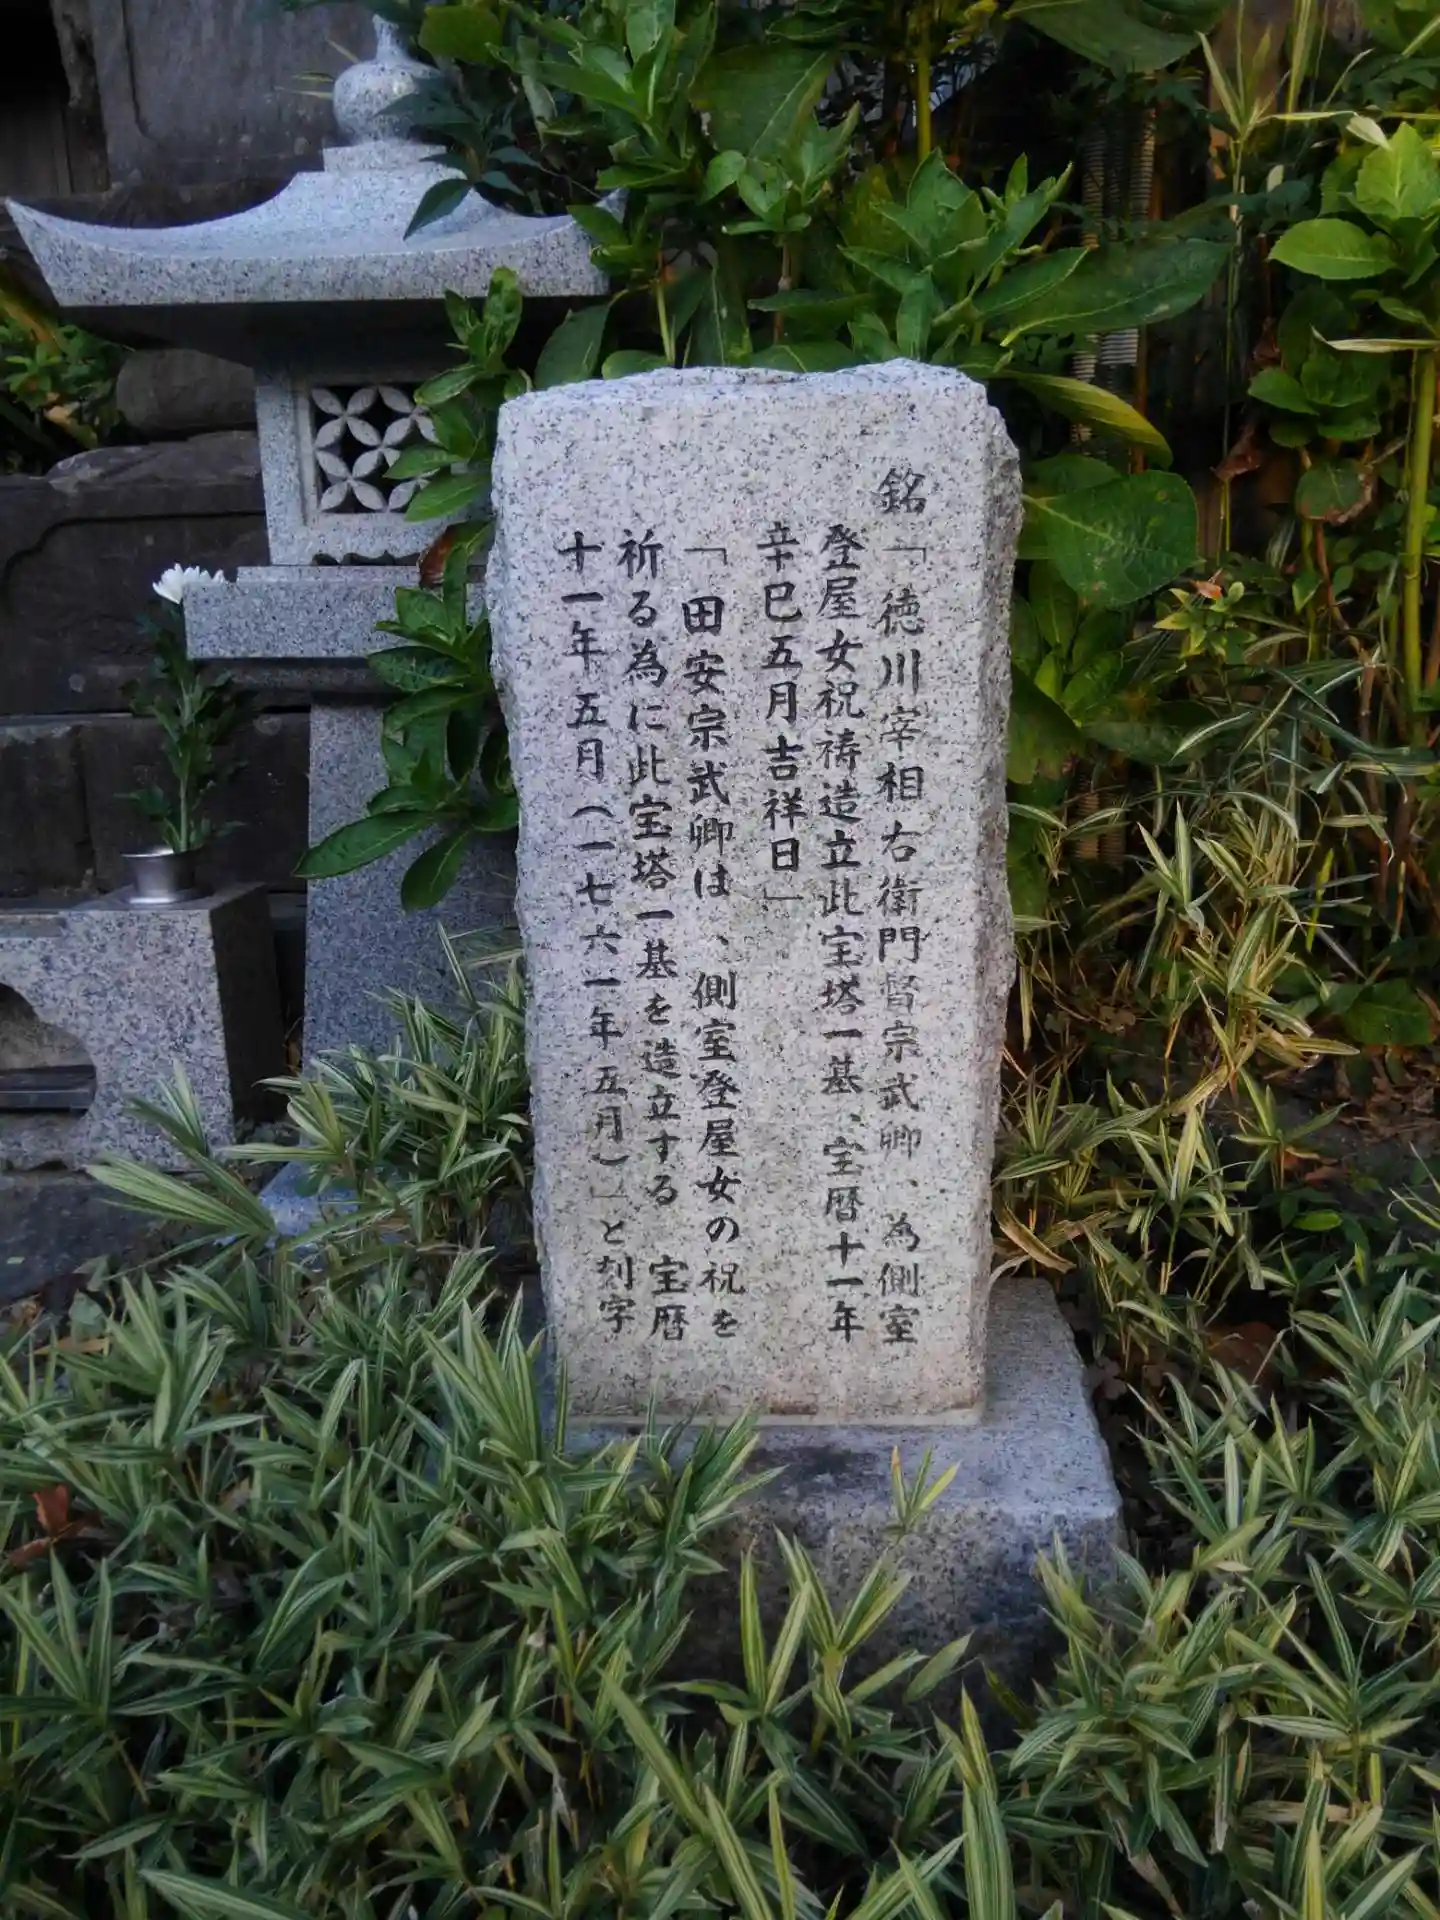 銘「徳川宰相右衛門督宗武卿、為側室
登屋女祝祷造立此宝塔一基、宝暦十一年
辛巳五月吉祥日」
「田安宗武卿は、側室登屋女の祝を
祈る為に此宝塔一基を造立する 宝暦
十一年五月(一七六一年五月)」と刻字